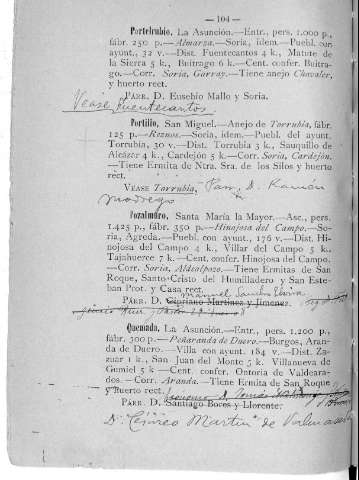 — 104 —
Portelrubio, La Asunción.—Entr., pers. 1.000 p.,
fábr. 250 p.—Almarza.—Soria, idem.—Puebl. con
ayunt., 32 v.—Dist. Fuentecantos 4 k., Matute de
la Sierra 5 k., Buitrago 6 k.—Cent. confer. Buitra-
go.—Corr. Soria, Garray.—Tiene anejo Chavaler,
y huerto rect.
PÁRR. D. Eusebio Mallo y Soria.
Vease Fuentecantos.
Portillo, San Miguel.—Anejo de Torrubia, fábr.
125 p.—Reznos.—Soria, idem.—Puebl. del ayunt.
Torrubia, 30 v.—Dist. Torrubia 3 k., Sauquillo de
Alcázar 4 k., Cardejón 5 k.—Corr. Soria, Cardejón.
—Tiene Ermita de Ntra. Sra. de los Silos y huerto
rect.
VÉASE Torrubia, Parr. D. Ramón
Modrego
Pozalmuro, Santa María la Mayor.—Asc., pers.
1.425 p., fábr. 350 p.—Hinojosa del Campo.—So-
ria, Agreda.—Puebl. con ayunt., 176 v.—Dist. Hi-
nojosa del Campo 4 k., Villar del Campo 5 k.,
Tajahuerce 7 k.—Cent. confer. Hinojosa del Campo.
—Corr. Soria, Aldealpozo.—Tiene Ermitas de San
Roque, Santo Cristo del Humilladero y San Este-
ban Prot. y Casa rect.
Manuel Sancho
PÁRR. D. Cipriano Martínez y Jimenez.
Quemada, La Asunción.—Entr., pers. 1.200 p.,
fábr. 300 p.—Peñaranda de Duero.—Burgos, Aran-
da de Duero.—Villa con ayunt. 184 v.—Dist. Za-
zuar 1 k., San Juan del Monte 5 k. Villanueva de
Gumiel 5 k.—Cent. confer. Ontoria de Valdearados.
—Corr. Aranda.—Tiene Ermita de San Roque
y huerto rect.
PÁRR. D. Santiago Boces y Llorente.
D. Martin de Valmaseda